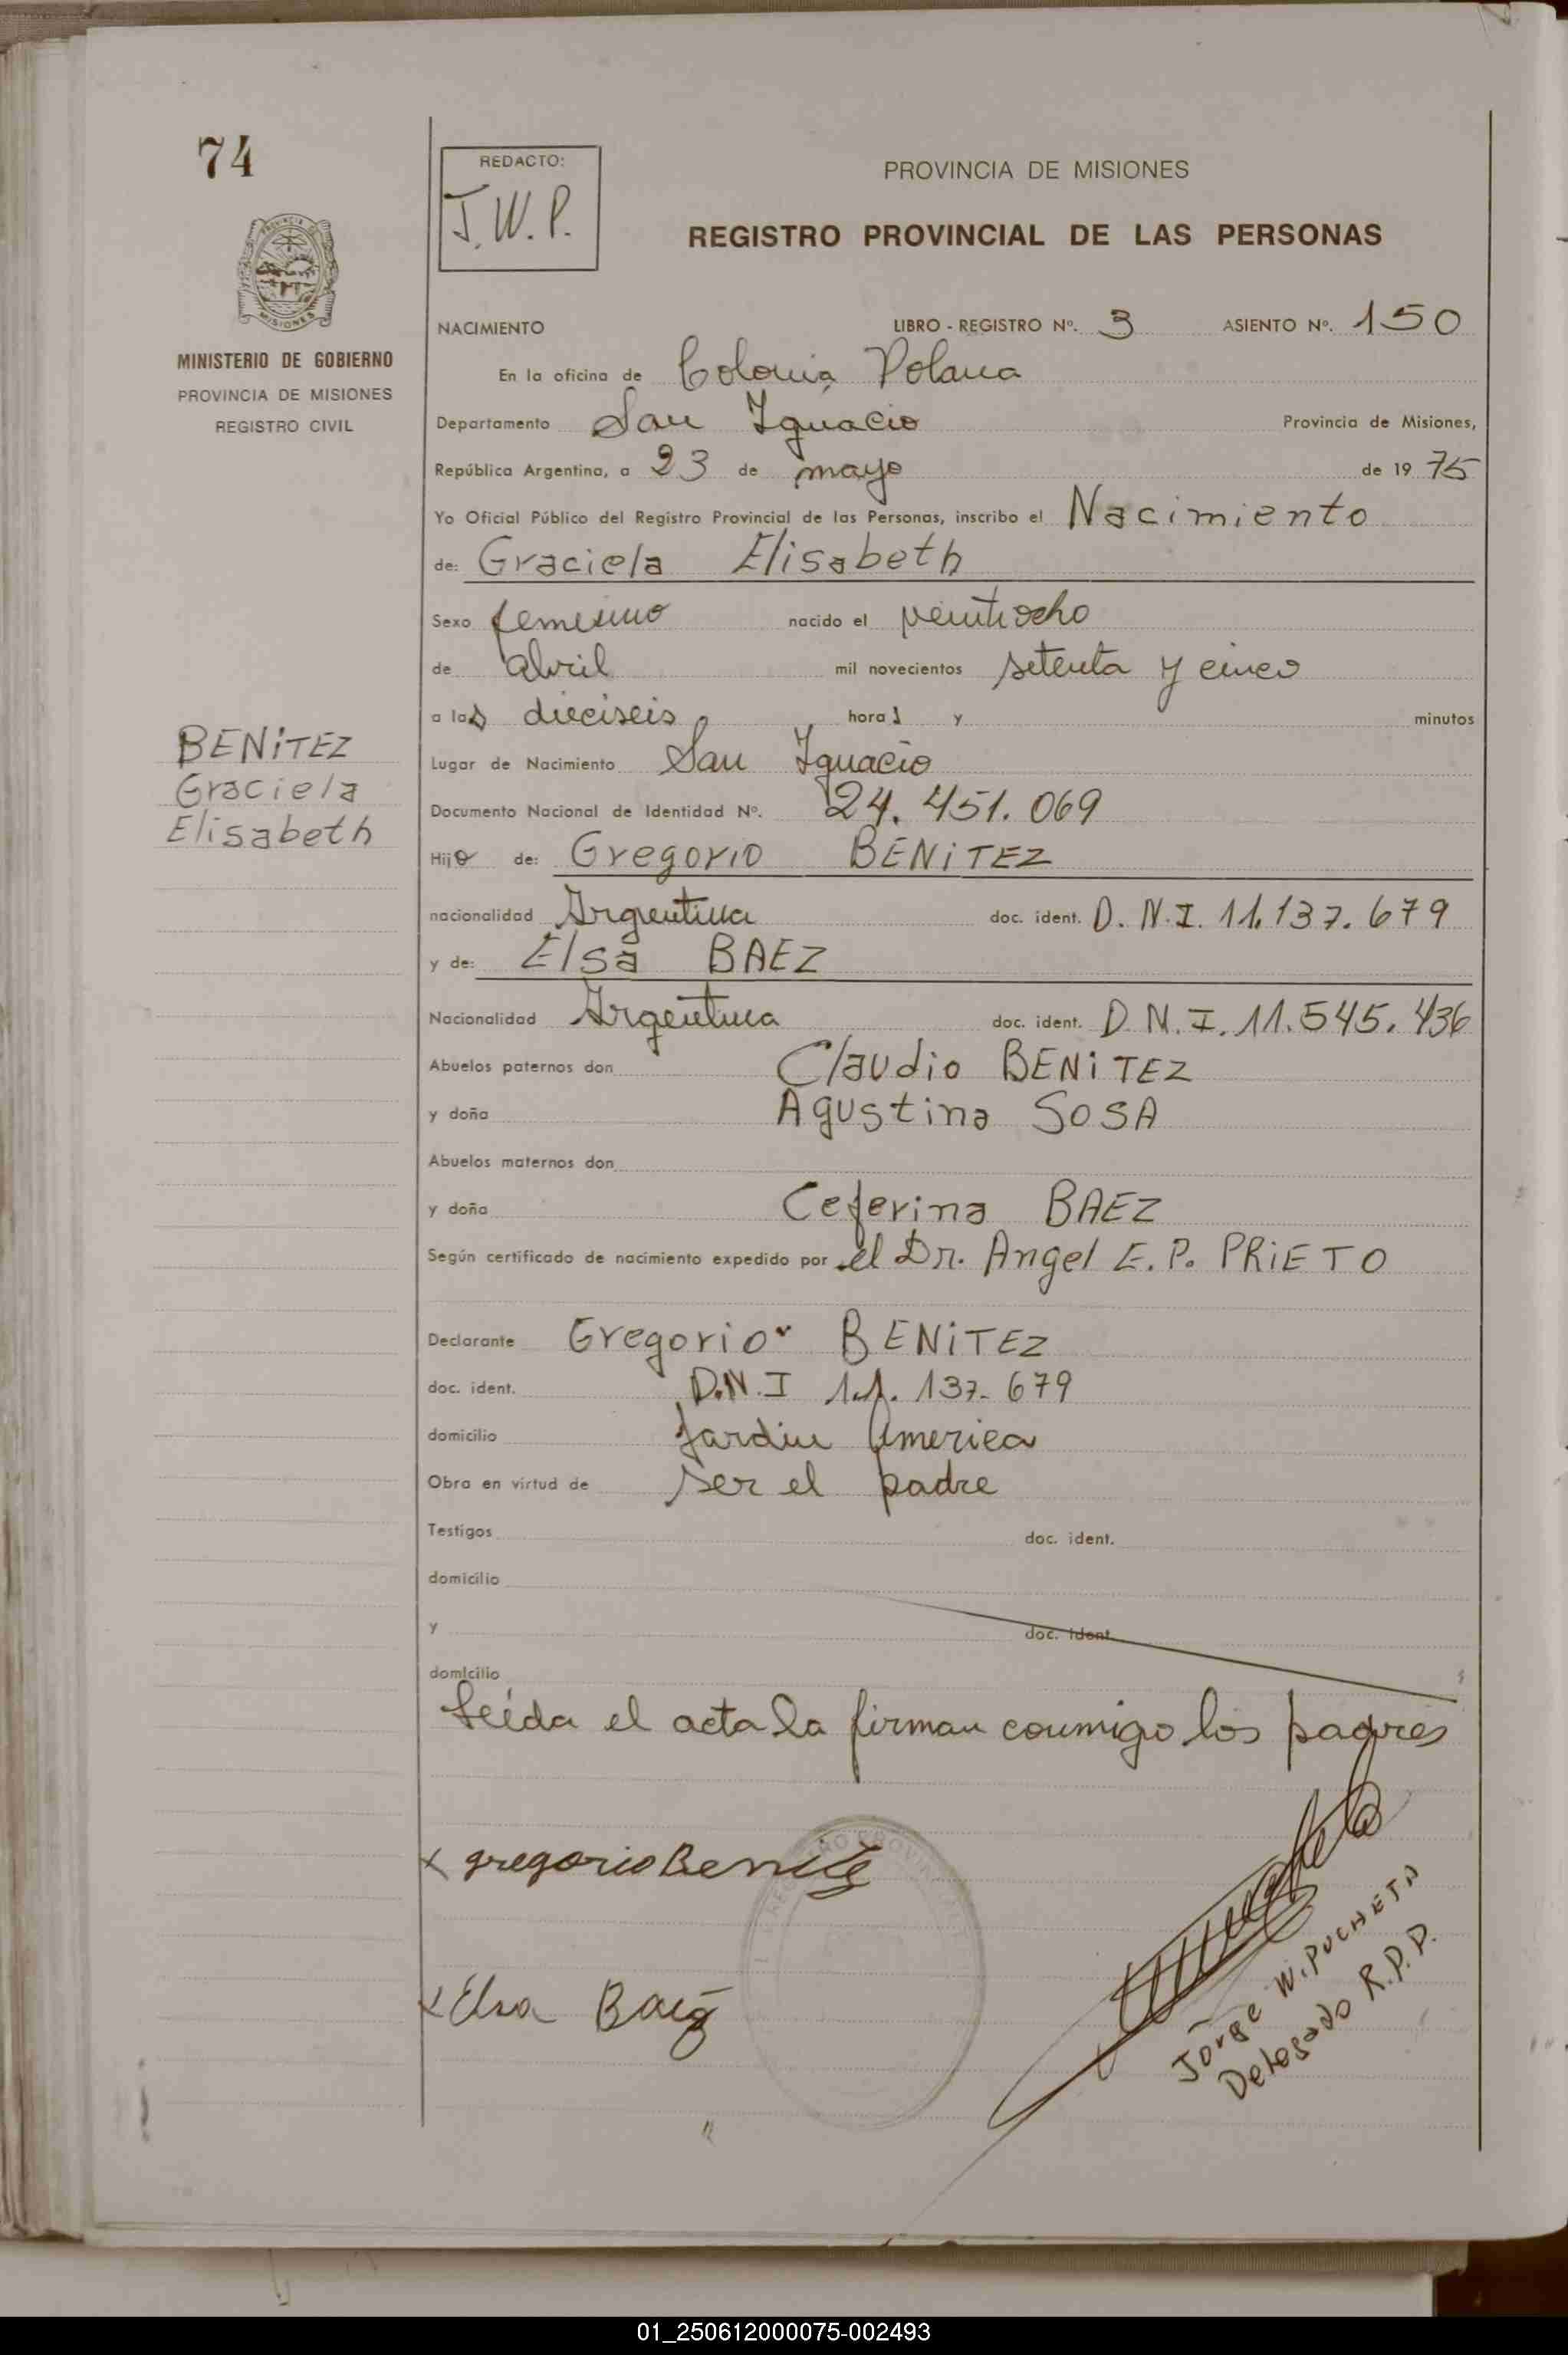 74
REDACTO:
J.W.P.
PROVINCIA DE MISIONES
REGISTRO PROVINCIAL DE LAS PERSONAS
PROVINCIA DE
MISIONES
MINISTERIO DE GOBIERNO
PROVINCIA DE MISIONES
REGISTRO CIVIL
NACIMIENTO LIBRO - REGISTRO Nº. 3 ASIENTO Nº. 150
En la oficina de Colonia Polana
Departamento San Ignacio Provincia de Misiones,
República Argentina, a 23 de mayo de 19 75
Yo Oficial Público del Registro Provincial de las Personas, inscribo el Nacimiento
de: Graciela Elisabeth
Sexo femenino nacido el veintiocho
de abril mil novecientos setenta y cinco
a las dieciseis horas y minutos
BENITEZ
Graciela
Elisabeth
Lugar de Nacimiento San Ignacio
Documento Nacional de Identidad Nº. 24.451.069
Hija de: Gregorio BENITEZ
nacionalidad Argentina doc. ident. D.N.I. 11.137.679
y de: Elsa BAEZ
Nacionalidad Argentina doc. ident. D.N.I. 11.545.436
Abuelos paternos don Claudio BENITEZ
y doña Agustina SOSA
Abuelos maternos don
y doña Ceferina BAEZ
Según certificado de nacimiento expedido por el Dr. Angel E.P. PRIETO
Declarante Gregorio BENITEZ
doc. ident. D.N.I 11.137.679
domicilio Jardin America
Obra en virtud de ser el padre
Testigos doc. ident.
domicilio
y doc. ident.
domicilio
Leída el acta la firman conmigo los padres
x gregorio Benitez
x Elsa Baez
Jorge W. PUCHETA
Delegado R.P.P.
01_250612000075-002493